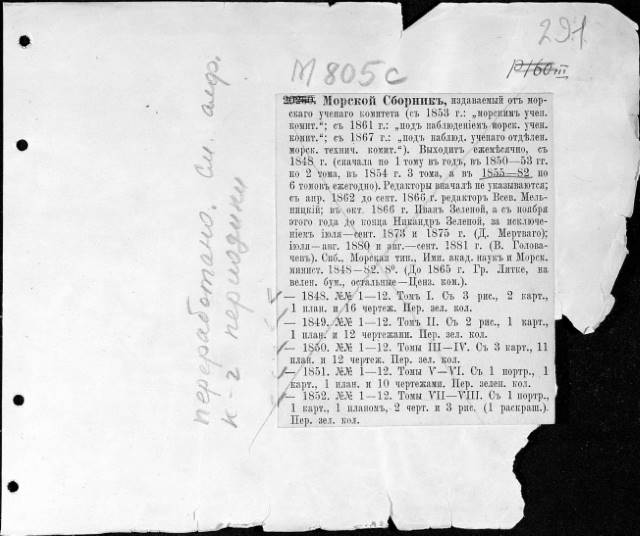 291
М 805с
P160 III
20260. Морской Сборникъ, издаваемый отъ мор-
скаго ученаго комитета (съ 1853 г.: „морскимъ учен.
комит.“; съ 1861 г.: „подъ наблюденіемъ морск. учен.
комит.“; съ 1867 г.: „подъ наблюд. ученаго отдѣлен.
морск. технич. комит.“). Выходитъ ежемѣсячно, съ
1848 г. (сначала по 1 тому въ годъ, въ 1850—53 гг.
по 2 тома, въ 1854 г. 3 тома, а въ 1855—82 по
6 томовъ ежегодно). Редакторы вначалѣ не указываются;
съ апр. 1862 до сент. 1866 г. редакторъ Всев. Мель-
ницкій; въ окт. 1866 г. Иванъ Зеленой, а съ ноября
этого года до конца Никандръ Зеленой, за исключе-
ніемъ іюля—сент. 1873 и 1875 г. (Д. Мертваго);
іюля—авг. 1880 и авг.—сент. 1881 г. (В. Голова-
чевъ). Спб., Морская тип., Имп. акад. наукъ и Морск.
минист. 1848—82. 8º. (До 1865 г. Гр. Литке, на
велен. бум., остальные—Ценз. ком.).
— 1848. №№ 1—12. Томъ I. Съ 3 рис., 2 карт.,
1 план. и 16 чертеж. Пер. зел. кол.
— 1849. №№ 1—12. Томъ II. Съ 2 рис., 1 карт.,
1 план. и 12 чертежами. Пер. зел. кол.
— 1850. №№ 1—12. Томы III—IV. Съ 3 карт., 11
план. и 12 чертеж. Пер. зел. кол.
— 1851. №№ 1—12. Томы V—VI. Съ 1 портр., 1
карт., 1 план. и 10 чертежами. Пер. зелен. кол.
— 1852. №№ 1—12. Томы VII—VIII. Съ 1 портр.,
1 карт., 1 планомъ, 2 черт. и 3 рис. (1 раскраш.).
Пер. зел. кол.
переработано. см. алф.
к-г периодики